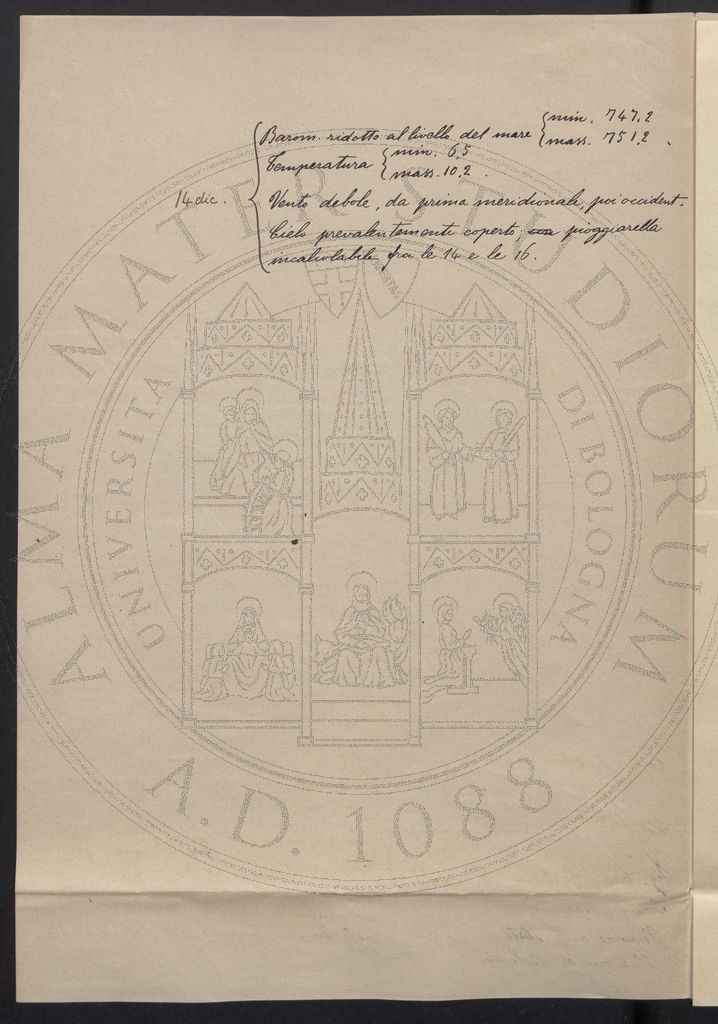 Barom. ridotto al livello del mare { min. 747,2
mass. 751,2
Temperatura { min. 6,5
mass. 10,2
14 dic.
Vento debole, da prima meridionale, poi occident.
Cielo prevalentemente coperto, pioggiarella
incalcolabile fra le 14 e le 16.
ALMA MATER STUDIORUM
UNIVERSITA DI BOLOGNA
A.D. 1088